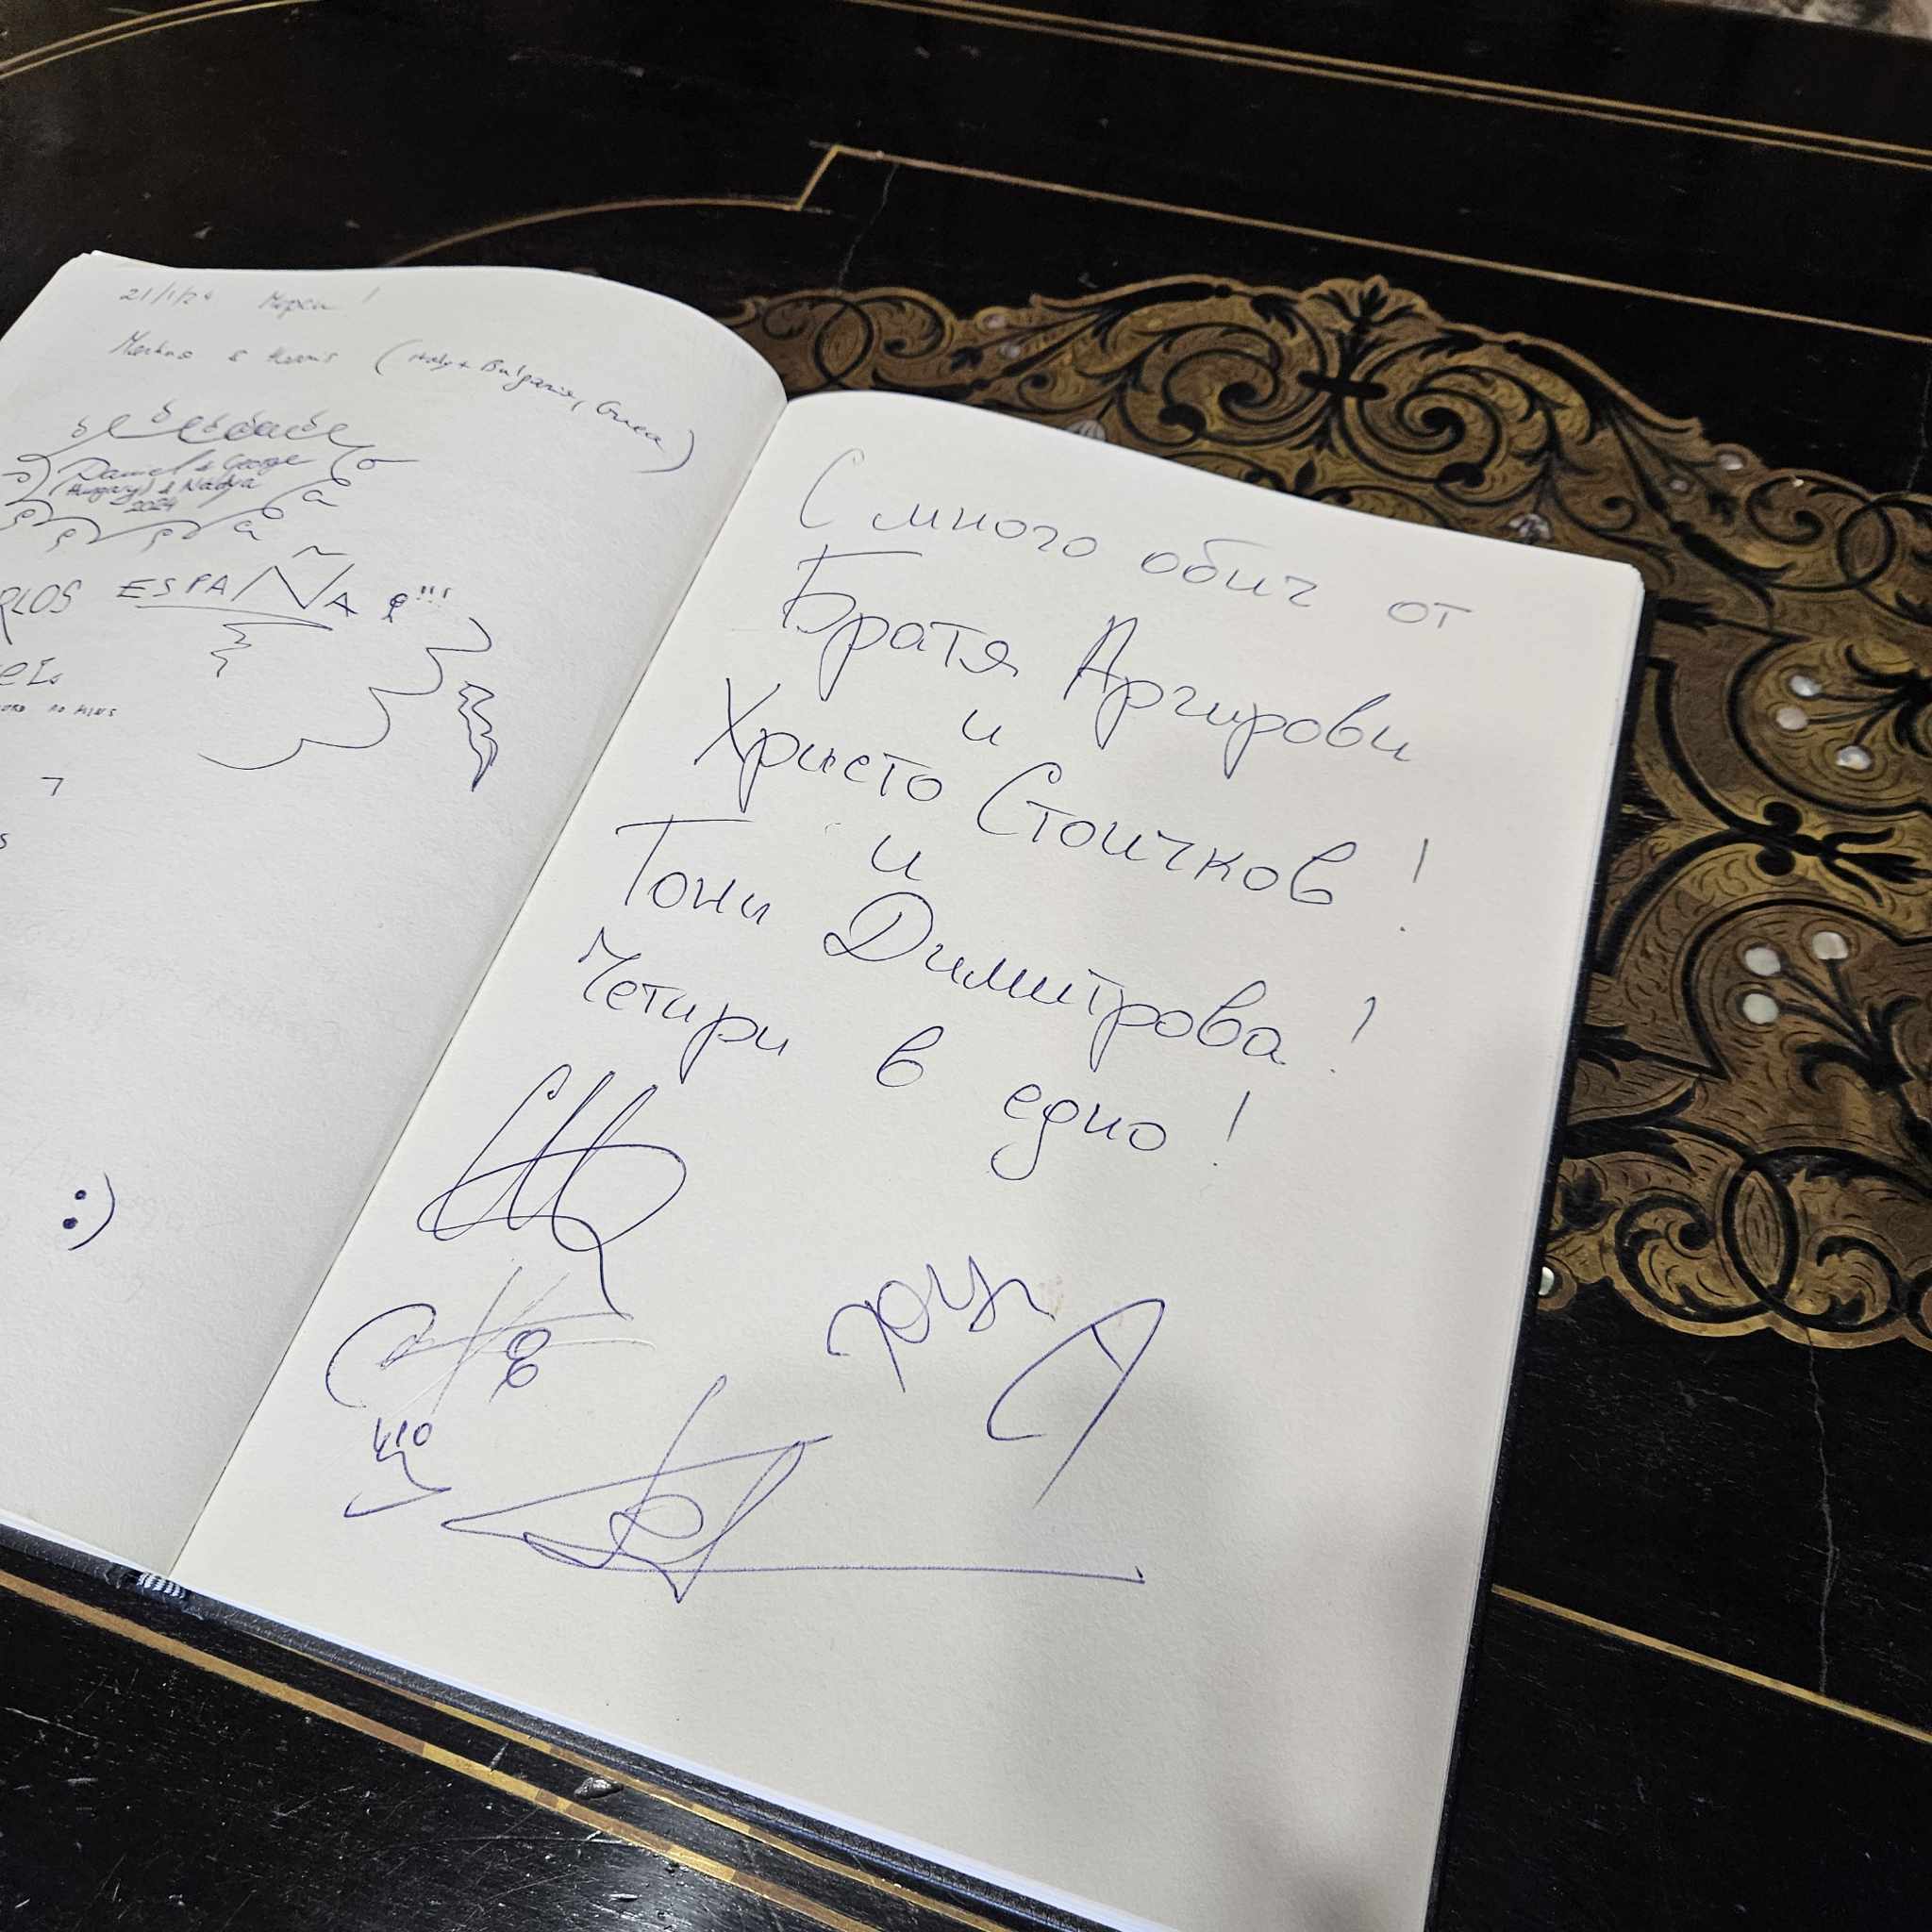 21/1/24 Мерси!
(Italy + Bulgaria, Greece)
Daniel & George
(Hungary) & Nadya
2024
RLOS ESPAÑA !!!
:)
С много обич от
Братя Аргирови
и
Христо Стоичков!
и
Тони Димитрова!
Четири в едно!